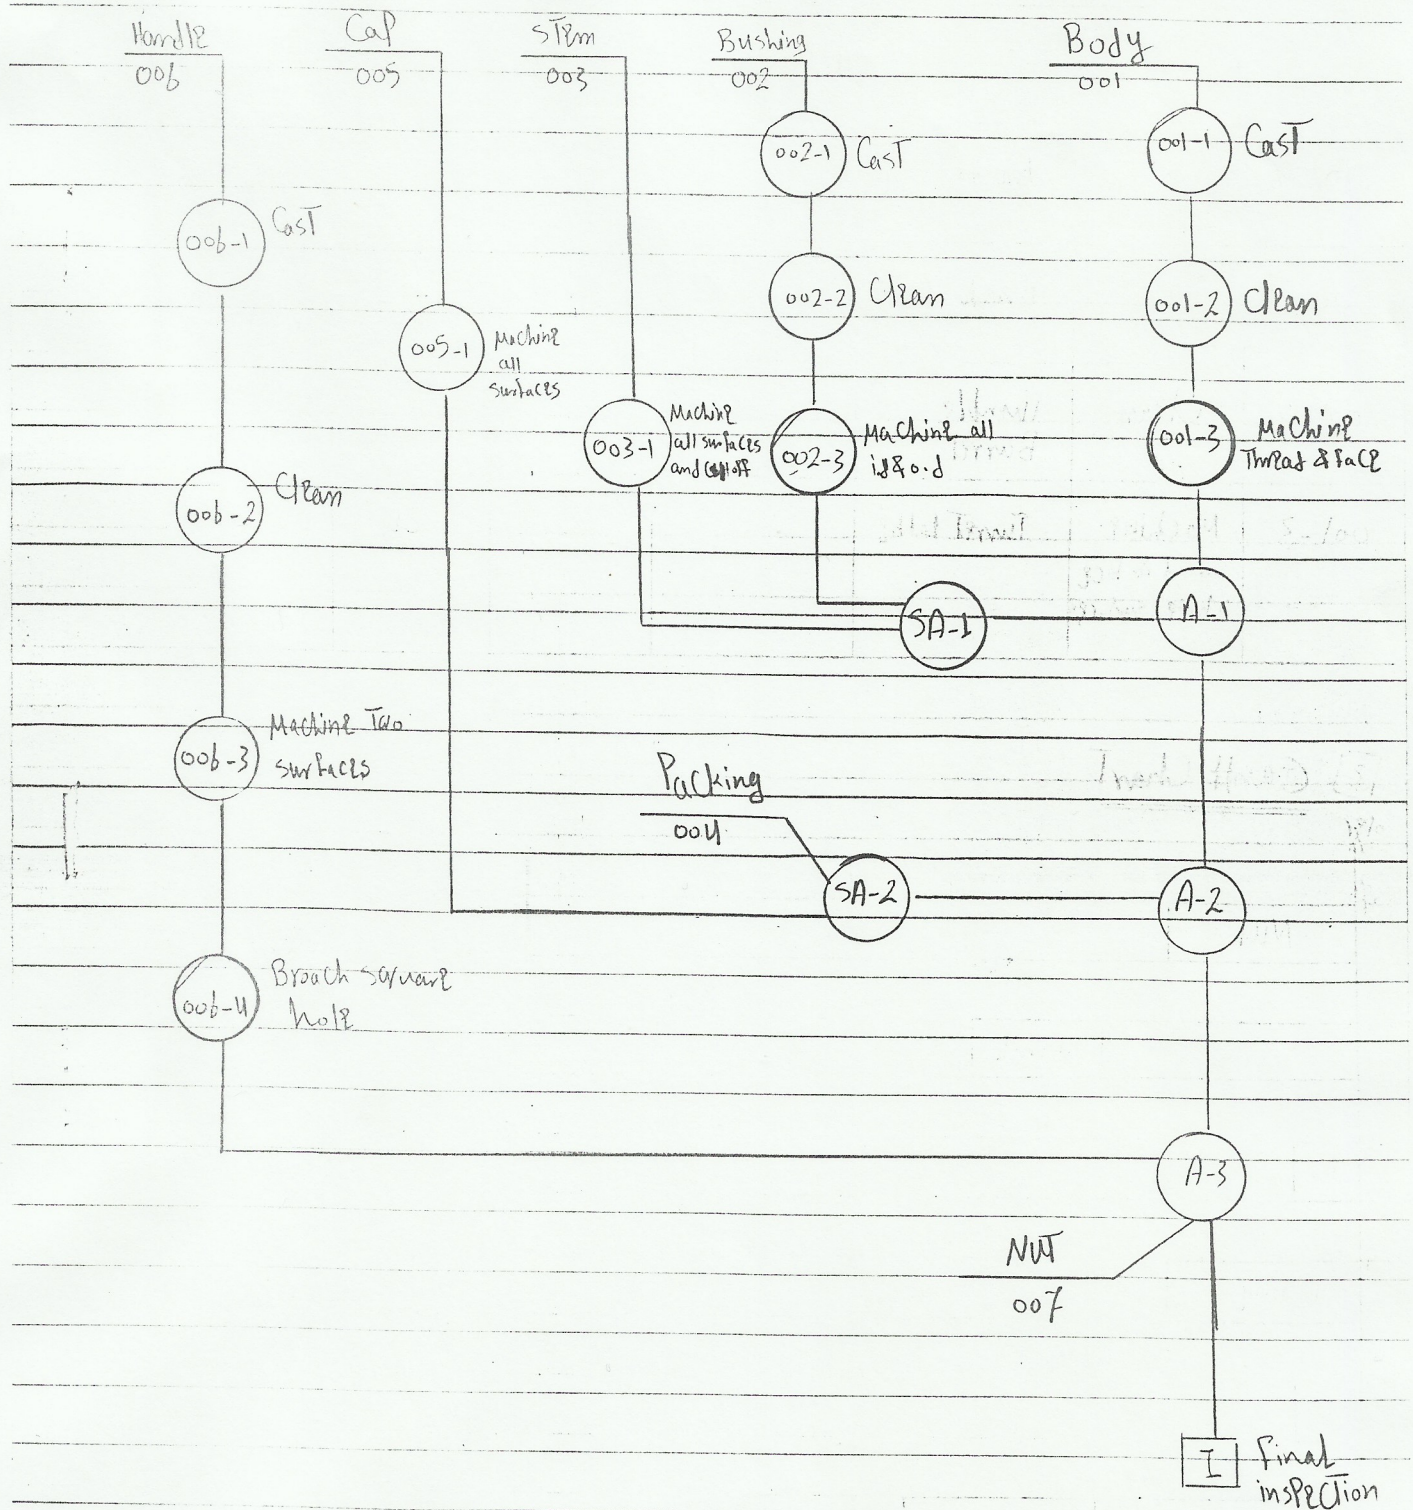 Handle
006
Cap
005
Stem
003
Bushing
002
Body
001
002-1
Cast
001-1
Cast
006-1
Cast
002-2
Clean
001-2
Clean
005-1
Machine
all
surfaces
003-1
Machine
all surfaces
and cutoff
002-3
Machine all
id & o.d
001-3
Machine
Thread & Face
006-2
Clean
SA-1
A-1
006-3
Machine Two
surfaces
Packing
004
SA-2
A-2
006-4
Broach square
hole
A-3
NUT
007
I
Final
inspection